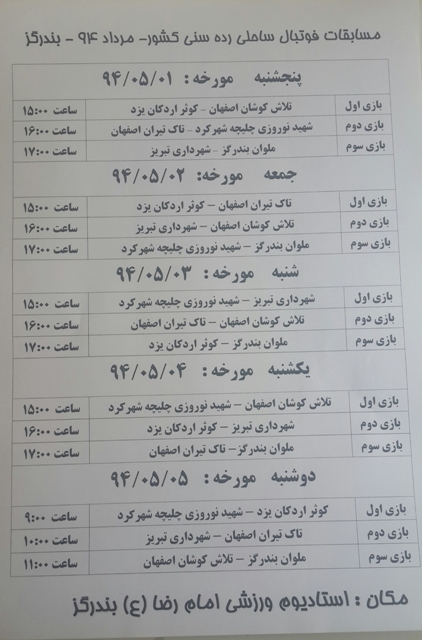 مسابقات فوتبال ساحلی رده سنی کشور- مرداد ۹۴ - بندرگز
پنجشنبه مورخه: ۹۴/۰۵/۰۱
بازی اول تلاش کوشان اصفهان - کوثر اردکان یزد ساعت ۱۵:۰۰
بازی دوم شهید نوروزی چلیچه شهرکرد - تاک تیران اصفهان ساعت ۱۶:۰۰
بازی سوم ملوان بندرگز - شهرداری تبریز ساعت ۱۷:۰۰
جمعه مورخه: ۹۴/۰۵/۰۲
بازی اول تاک تیران اصفهان – کوثر اردکان یزد ساعت ۱۵:۰۰
بازی دوم تلاش کوشان اصفهان – شهرداری تبریز ساعت ۱۶:۰۰
بازی سوم ملوان بندرگز – شهید نوروزی چلیچه شهرکرد ساعت ۱۷:۰۰
شنبه مورخه: ۹۴/۰۵/۰۳
بازی اول شهرداری تبریز – شهید نوروزی چلیچه شهرکرد ساعت ۱۵:۰۰
بازی دوم تلاش کوشان اصفهان – تاک تیران اصفهان ساعت ۱۶:۰۰
بازی سوم ملوان بندرگز – کوثر اردکان یزد ساعت ۱۷:۰۰
یکشنبه مورخه: ۹۴/۰۵/۰۴
بازی اول تلاش کوشان اصفهان – شهید نوروزی چلیچه شهرکرد ساعت ۱۵:۰۰
بازی دوم شهرداری تبریز – کوثر اردکان یزد ساعت ۱۶:۰۰
بازی سوم ملوان بندرگز – تاک تیران اصفهان ساعت ۱۷:۰۰
دوشنبه مورخه: ۹۴/۰۵/۰۵
بازی اول کوثر اردکان یزد – شهید نوروزی چلیچه شهرکرد ساعت ۹:۰۰
بازی دوم تاک تیران اصفهان – شهرداری تبریز ساعت ۱۰:۰۰
بازی سوم ملوان بندرگز – تلاش کوشان اصفهان ساعت ۱۱:۰۰
مکان : استادیوم ورزشی امام رضا (ع) بندرگز